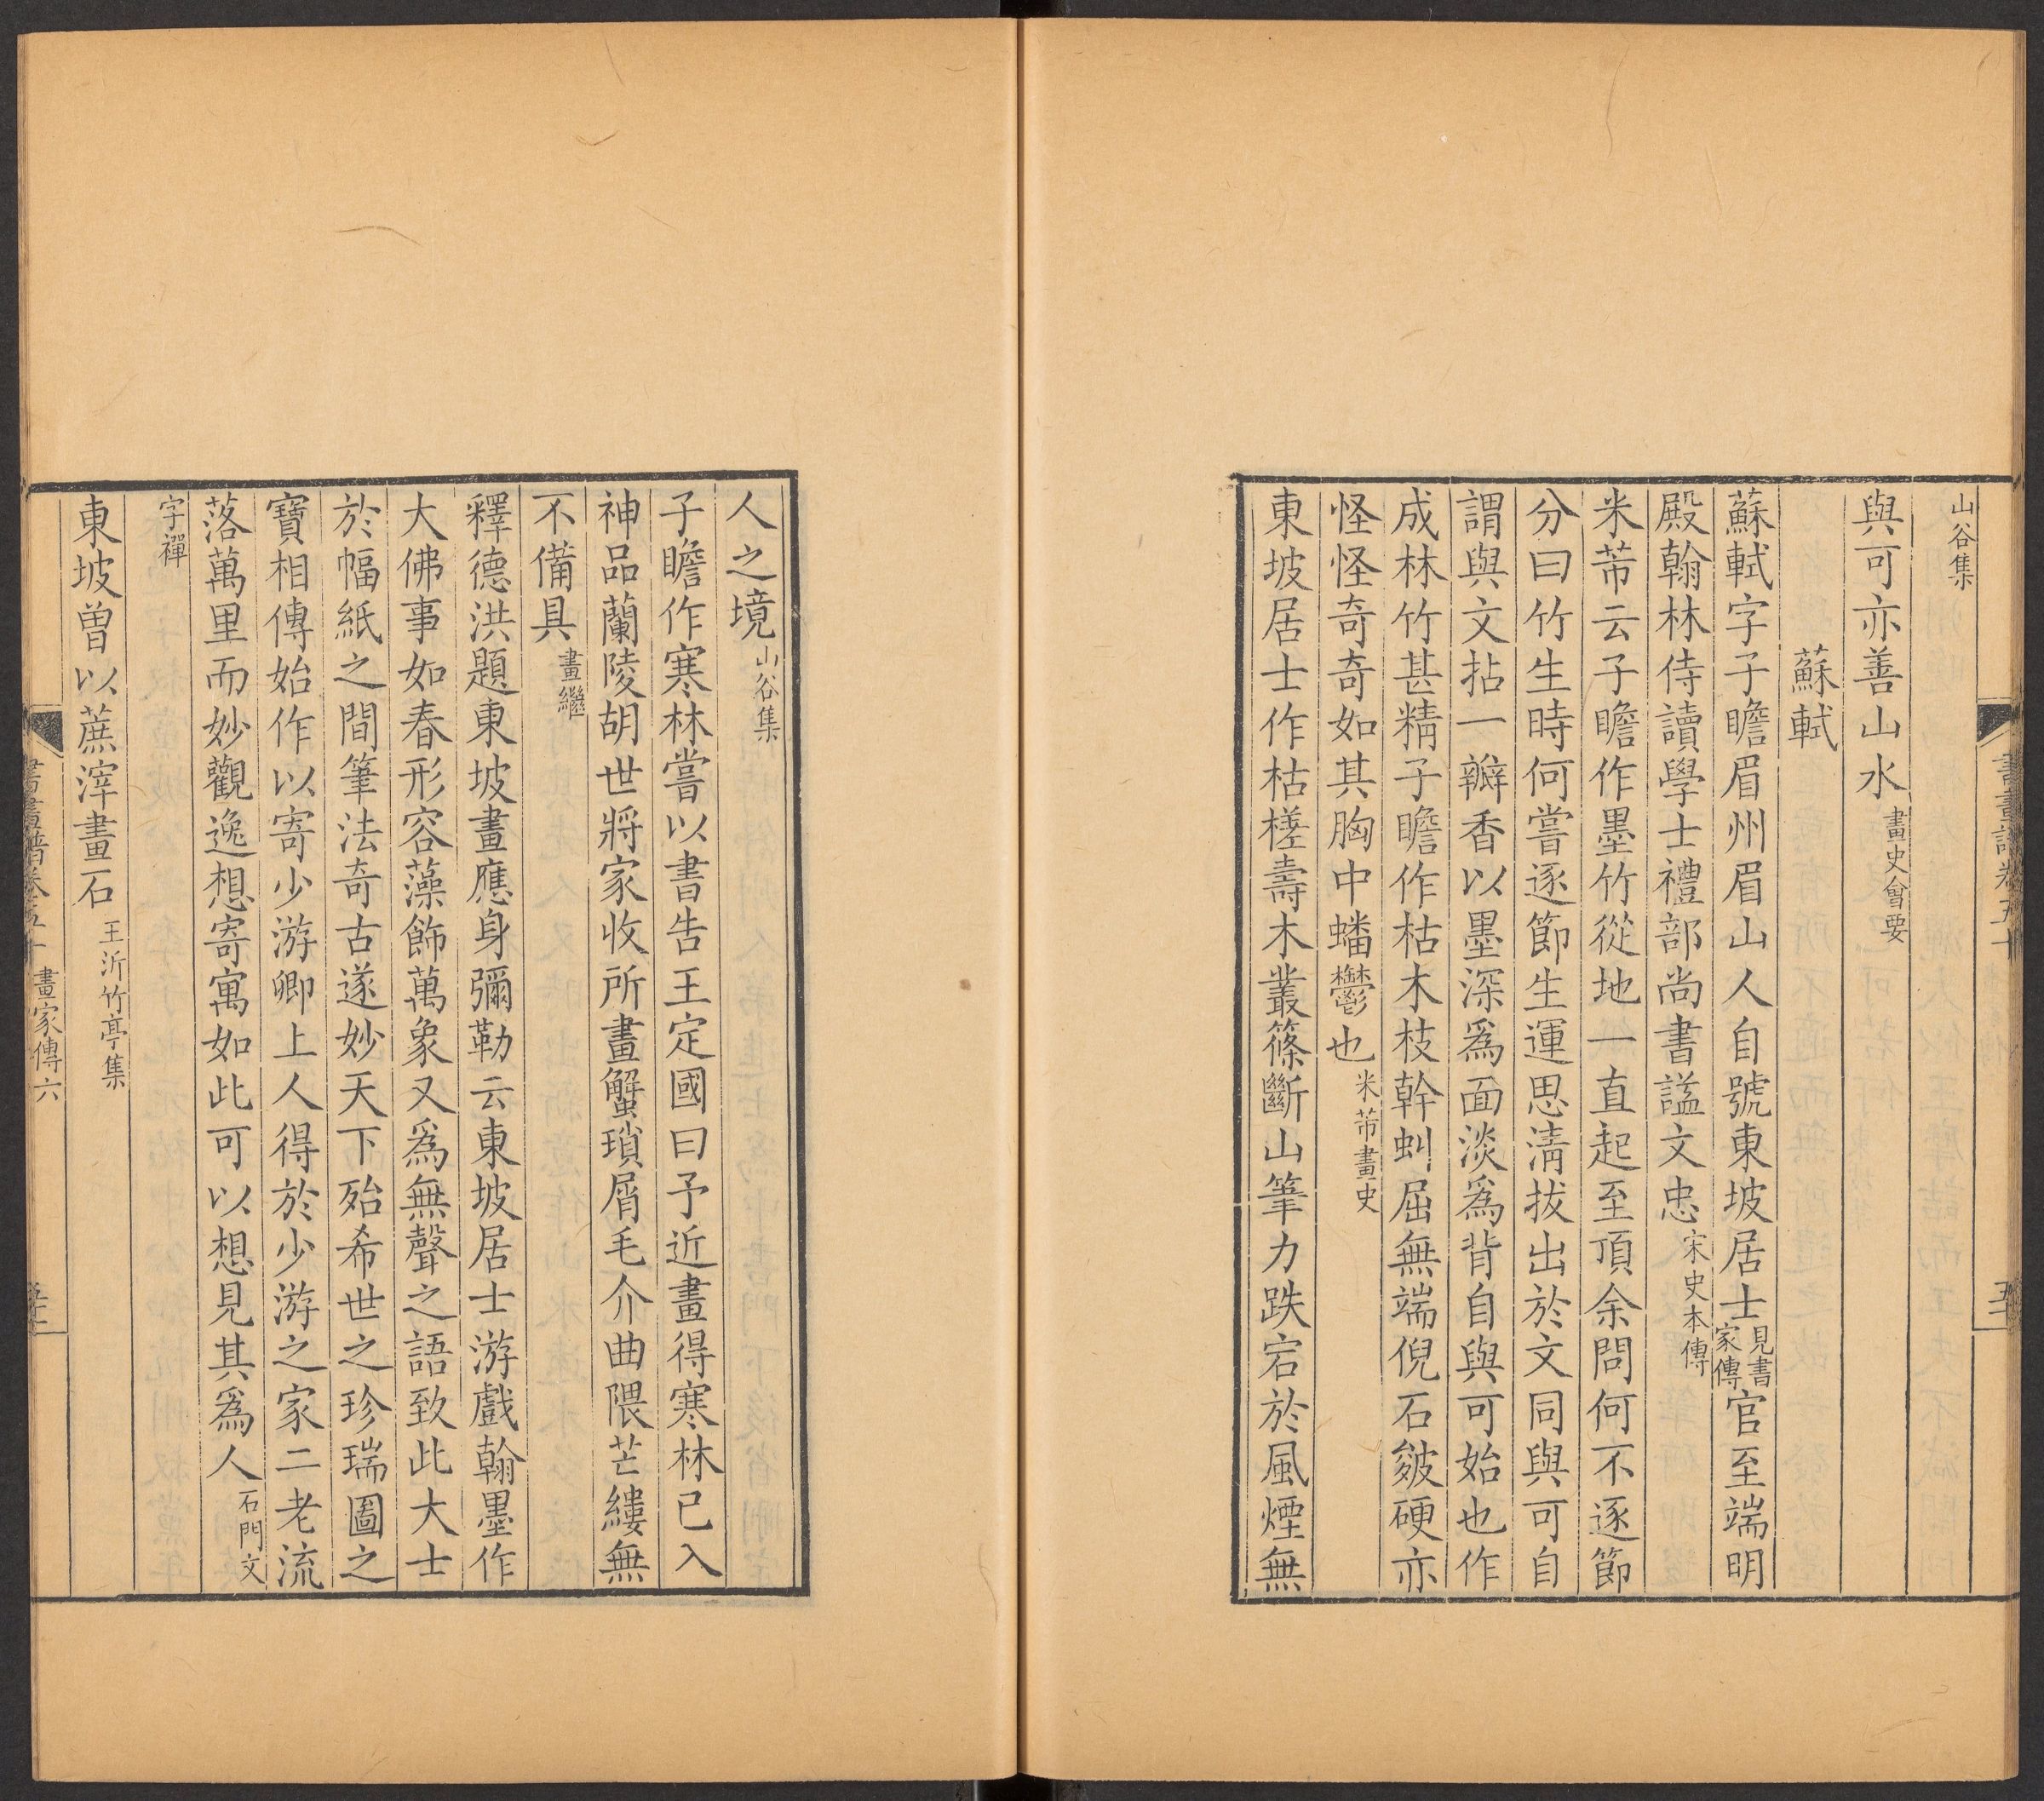 山谷集
與可亦善山水畫史會要
蘇軾
蘇軾字子瞻眉州眉山人自號東坡居士見書家傳官至端明
殿翰林侍讀學士禮部尚書謚文忠宋史本傳
米芾云子瞻作墨竹從地一直起至頂余問何不逐節
分曰竹生時何嘗逐節生運思清拔出於文同與可自
謂與文拈一瓣香以墨深爲面淡爲背自與可始也作
成林竹甚精子瞻作枯木枝幹虯屈無端倪石皴硬亦
怪怪奇奇如其胸中蟠鬱也米芾畫史
東坡居士作枯槎壽木叢篠斷山筆力跌宕於風煙無
人之境山谷集
子瞻作寒林嘗以書告王定國曰予近畫得寒林已入
神品蘭陵胡世將家收所畫蟹瑣屑毛介曲隈芒縷無
不備具畫繼
釋德洪題東坡畫應身彌勒云東坡居士游戲翰墨作
大佛事如春形容藻飾萬象又爲無聲之語致此大士
於幅紙之間筆法奇古遂妙天下殆希世之珍瑞圖之
寶相傳始作以寄少游卿上人得於少游之家二老流
落萬里而妙觀逸想寄寓如此可以想見其爲人石門文
字禪
東坡曾以蔗滓畫石王沂竹亭集
書畫譜卷五十 畫家傳六